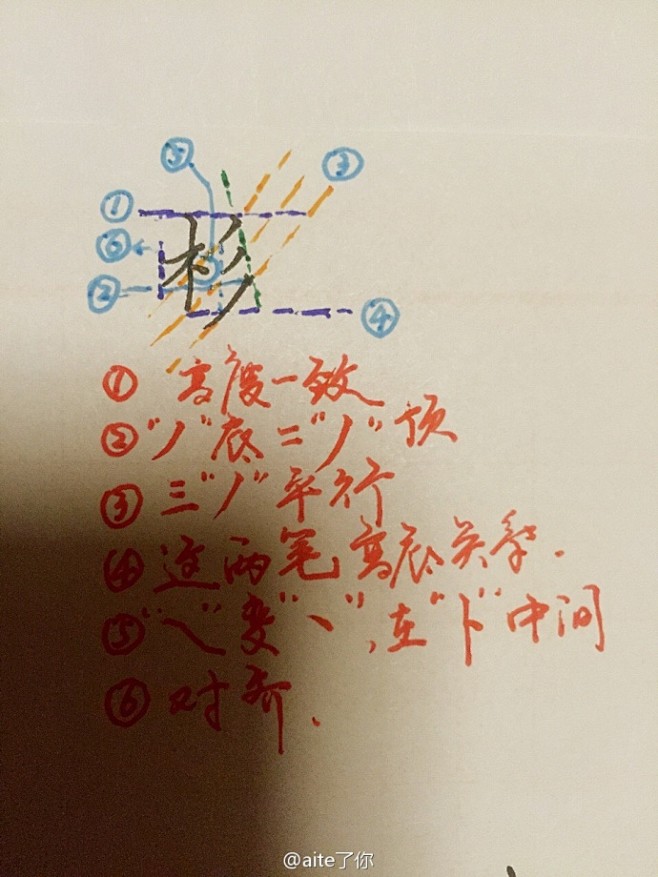 ⑤ ③
①
⑥
②
杉
④
① 高度一致
② "丿"底="丿"顶
③ 三"丿"平行
④ 这两笔高底关系.
⑤ "㇏"变"丶",在"卜"中间
⑥ 对齐.
@aite了你